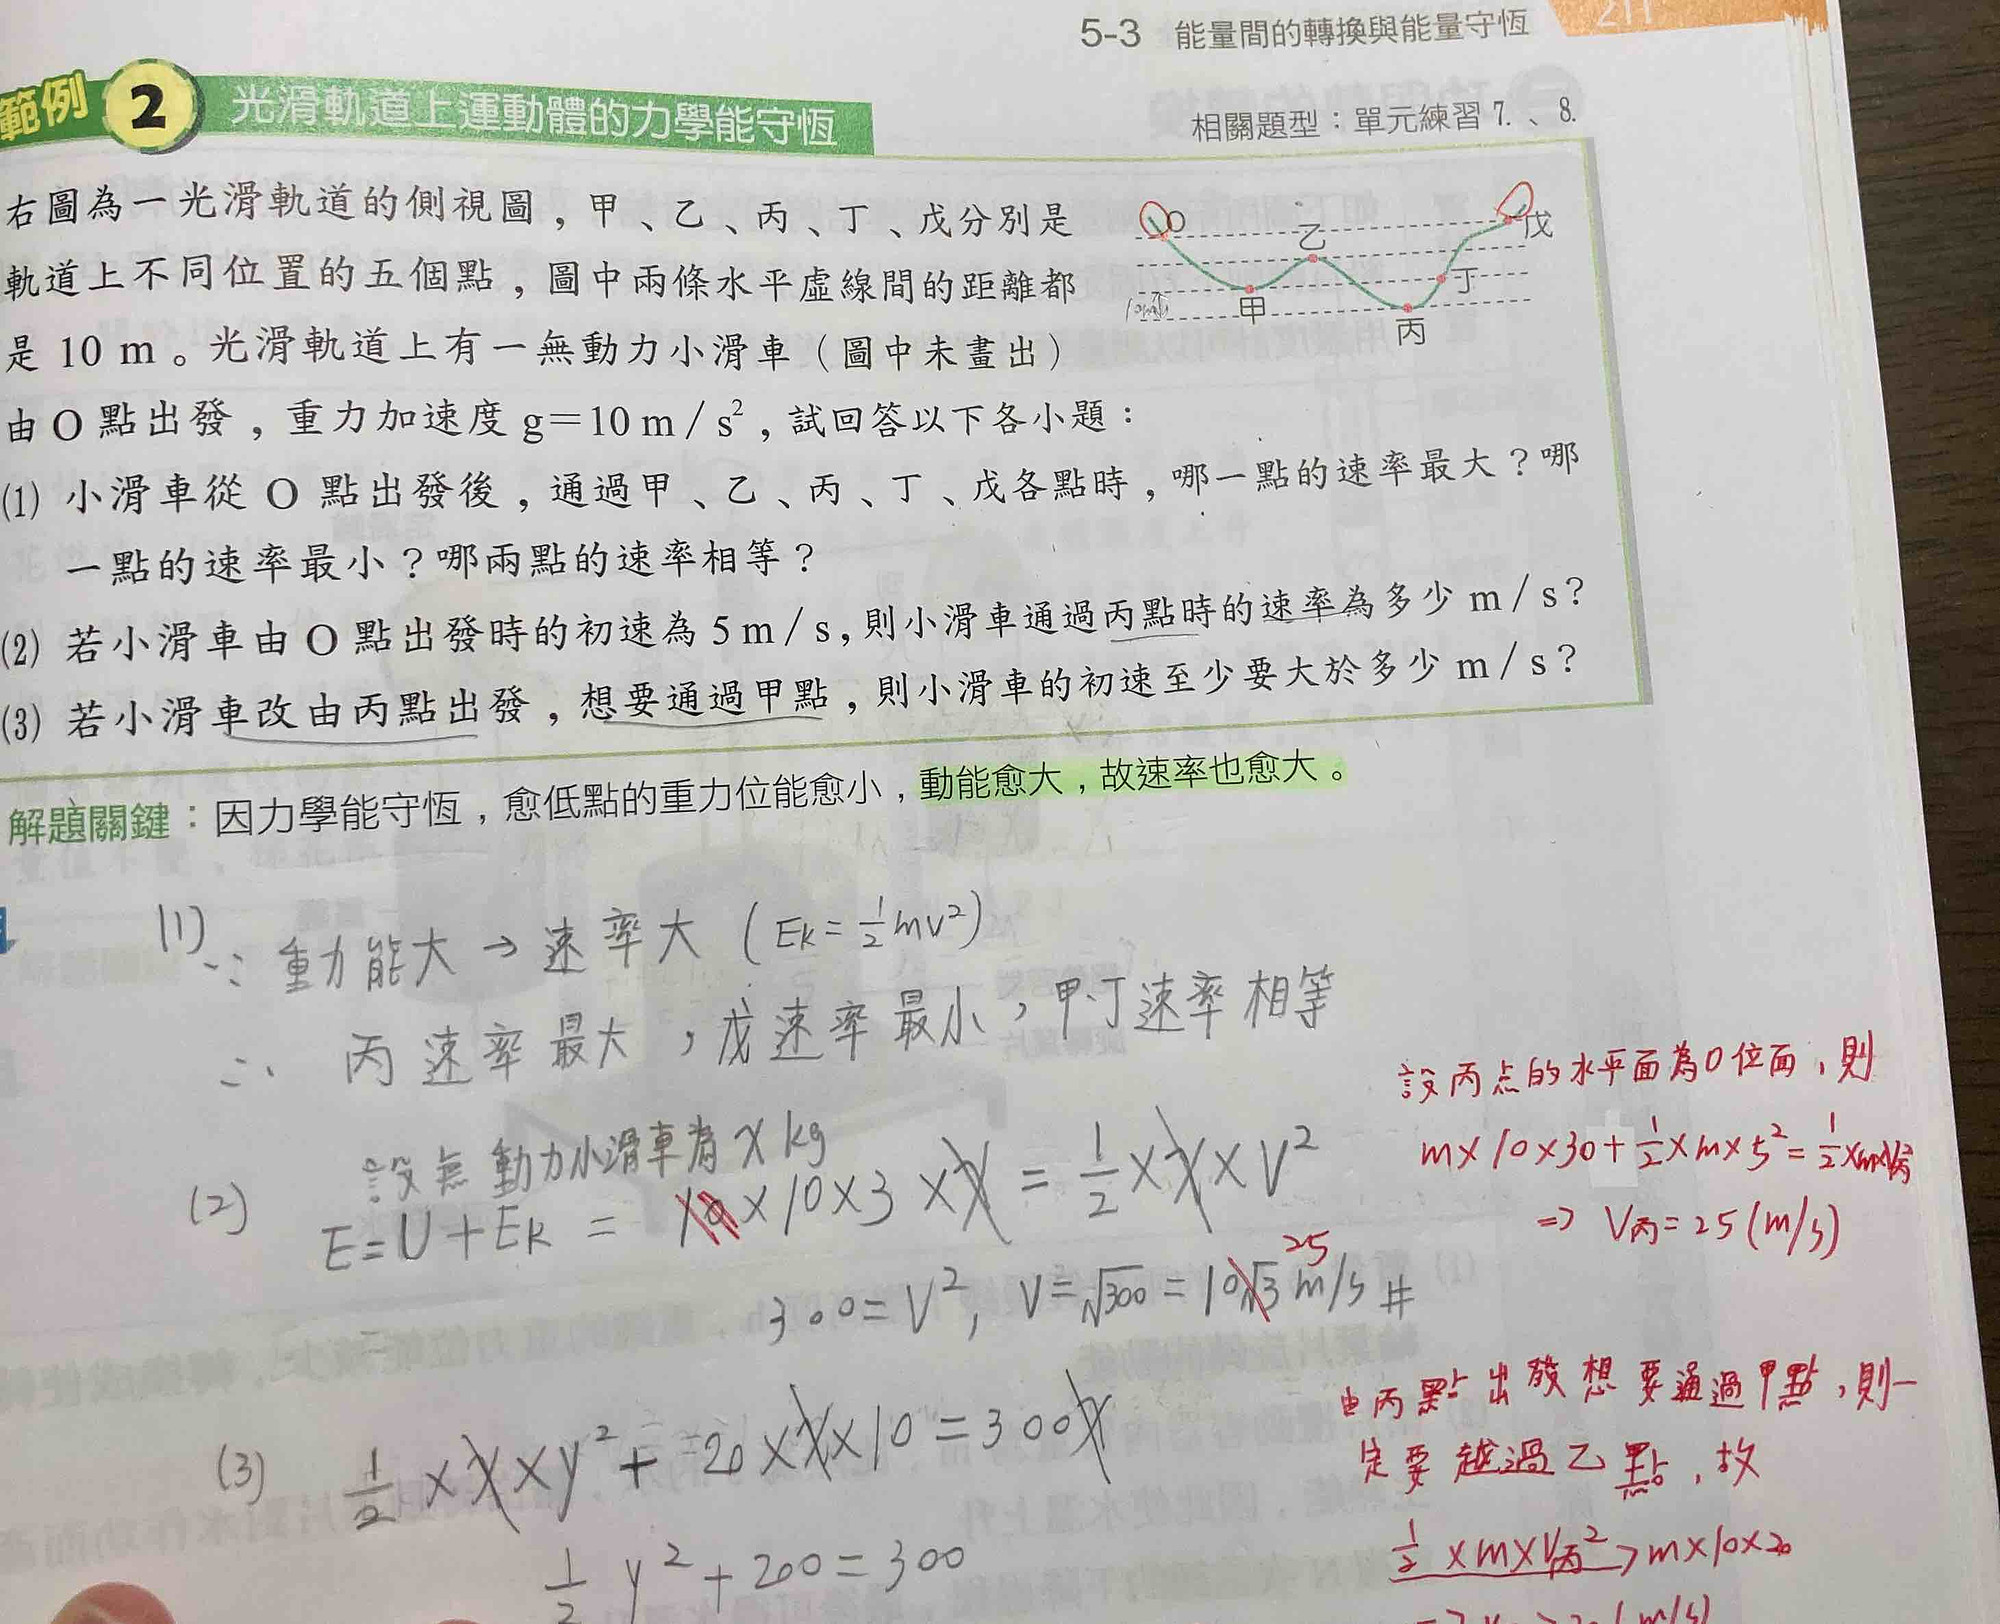 5-3 能量間的轉換與能量守恆
211
範例 2 光滑軌道上運動體的力學能守恆
相關題型：單元練習 7. 、 8.
右圖為一光滑軌道的側視圖，甲、乙、丙、丁、戊分別是
軌道上不同位置的五個點，圖中兩條水平虛線間的距離都
是 10 m。光滑軌道上有一無動力小滑車（圖中未畫出）
由 O 點出發，重力加速度 g＝10 m／s²，試回答以下各小題：
O
甲
乙
丙
丁
戊
10m
(1) 小滑車從 O 點出發後，通過甲、乙、丙、丁、戊各點時，哪一點的速率最大？哪
一點的速率最小？哪兩點的速率相等？
(2) 若小滑車由 O 點出發時的初速為 5 m／s，則小滑車通過丙點時的速率為多少 m／s？
(3) 若小滑車改由丙點出發，想要通過甲點，則小滑車的初速至少要大於多少 m／s？
解題關鍵：因力學能守恆，愈低點的重力位能愈小，動能愈大，故速率也愈大。
(1) ∵ 動能大 → 速率大 (Ek = ½mv²)
∴ 丙速率最大，戊速率最小，甲丁速率相等
設無動力小滑車為 x kg
(2) E = U + Ek = 10 × 10 × 3 × x = ½ × x × V²
300 = V², V = √300 = 10√3 m/s #
25
(3) ½ × x × y² + 20 × x × 10 = 300x
½ y² + 200 = 300
設丙点的水平面為0位面，則
m × 10 × 30 + ½ × m × 5² = ½ × m × V丙²
⇒ V丙 = 25 (m/s)
由丙點出發想要通過甲點，則一
定要越過乙點，故
½ × m × V丙² > m × 10 × 20